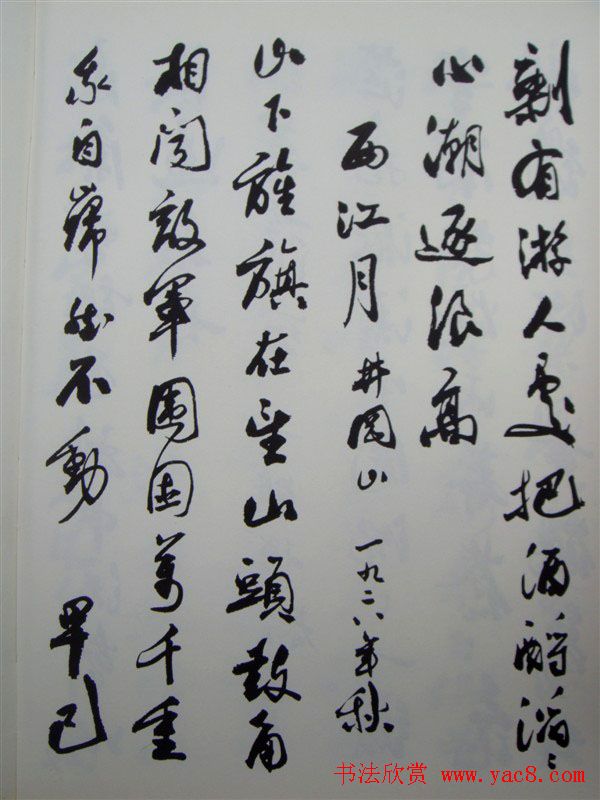 剩有游人處把酒酹滔〻
心潮逐浪高
西江月 井岡山 一九二八年秋
山下旌旗在望山頭鼓角
相聞敵軍圍困萬千重
我自巋然不動 早已
书法欣赏 www.yac8.com